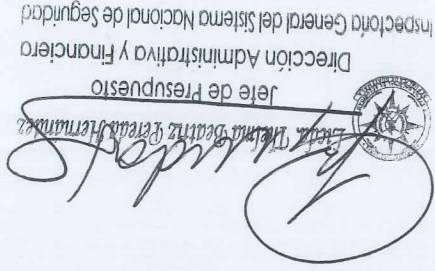 Licda. Thelma Beatriz Pereda Hernández
Jefe de Presupuesto
Dirección Administrativa y Financiera
Inspectoría General del Sistema Nacional de Seguridad